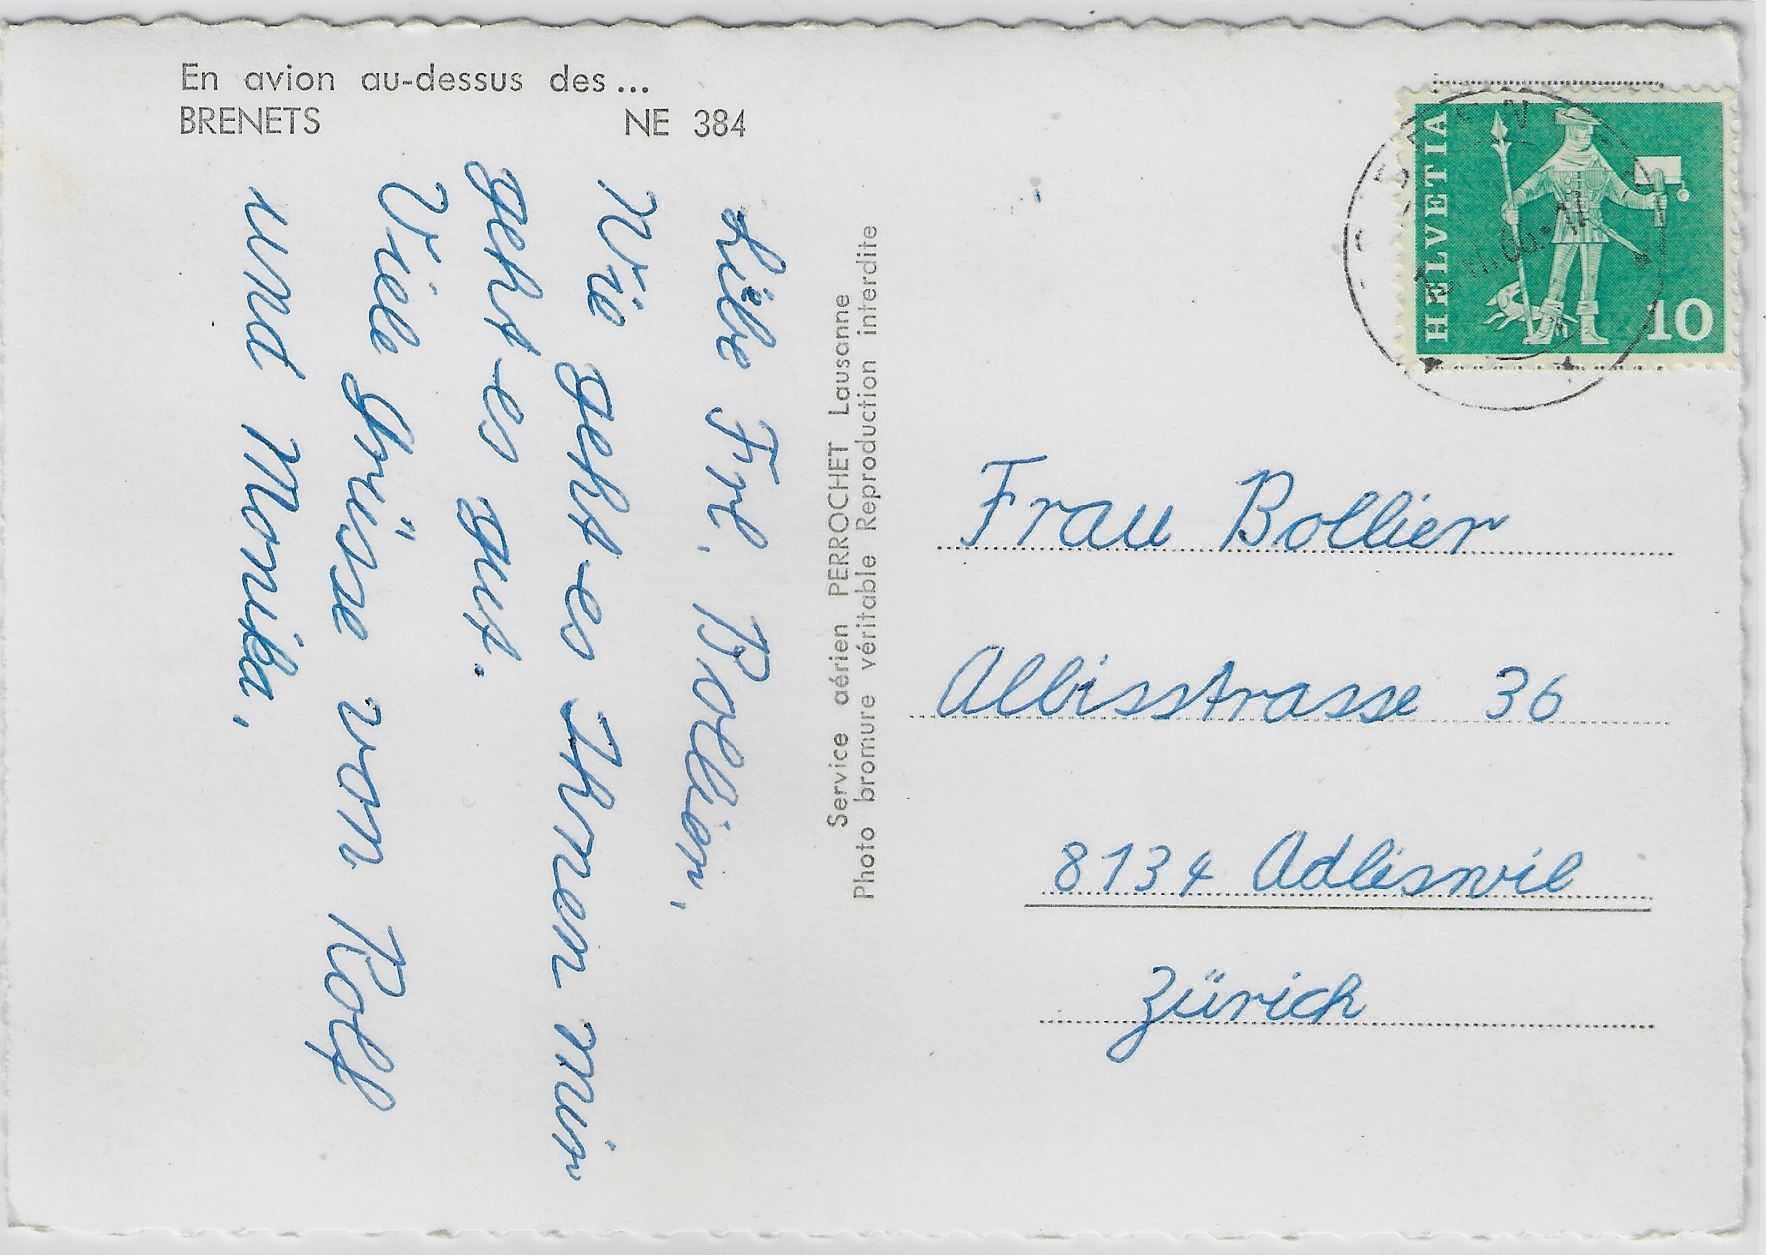 En avion au-dessus des...
BRENETS NE 384
Liebe Frl. Bollier,
Wie geht es Ihnen mir
geht es gut.
Viele Grüsse von Rolf
und Monika,
Service aérien PERROCHET Lausanne
Photo bromure véritable Reproduction interdite
HELVETIA
10
Frau Bollier
Albisstrasse 36
8134 Adliswil
Zürich